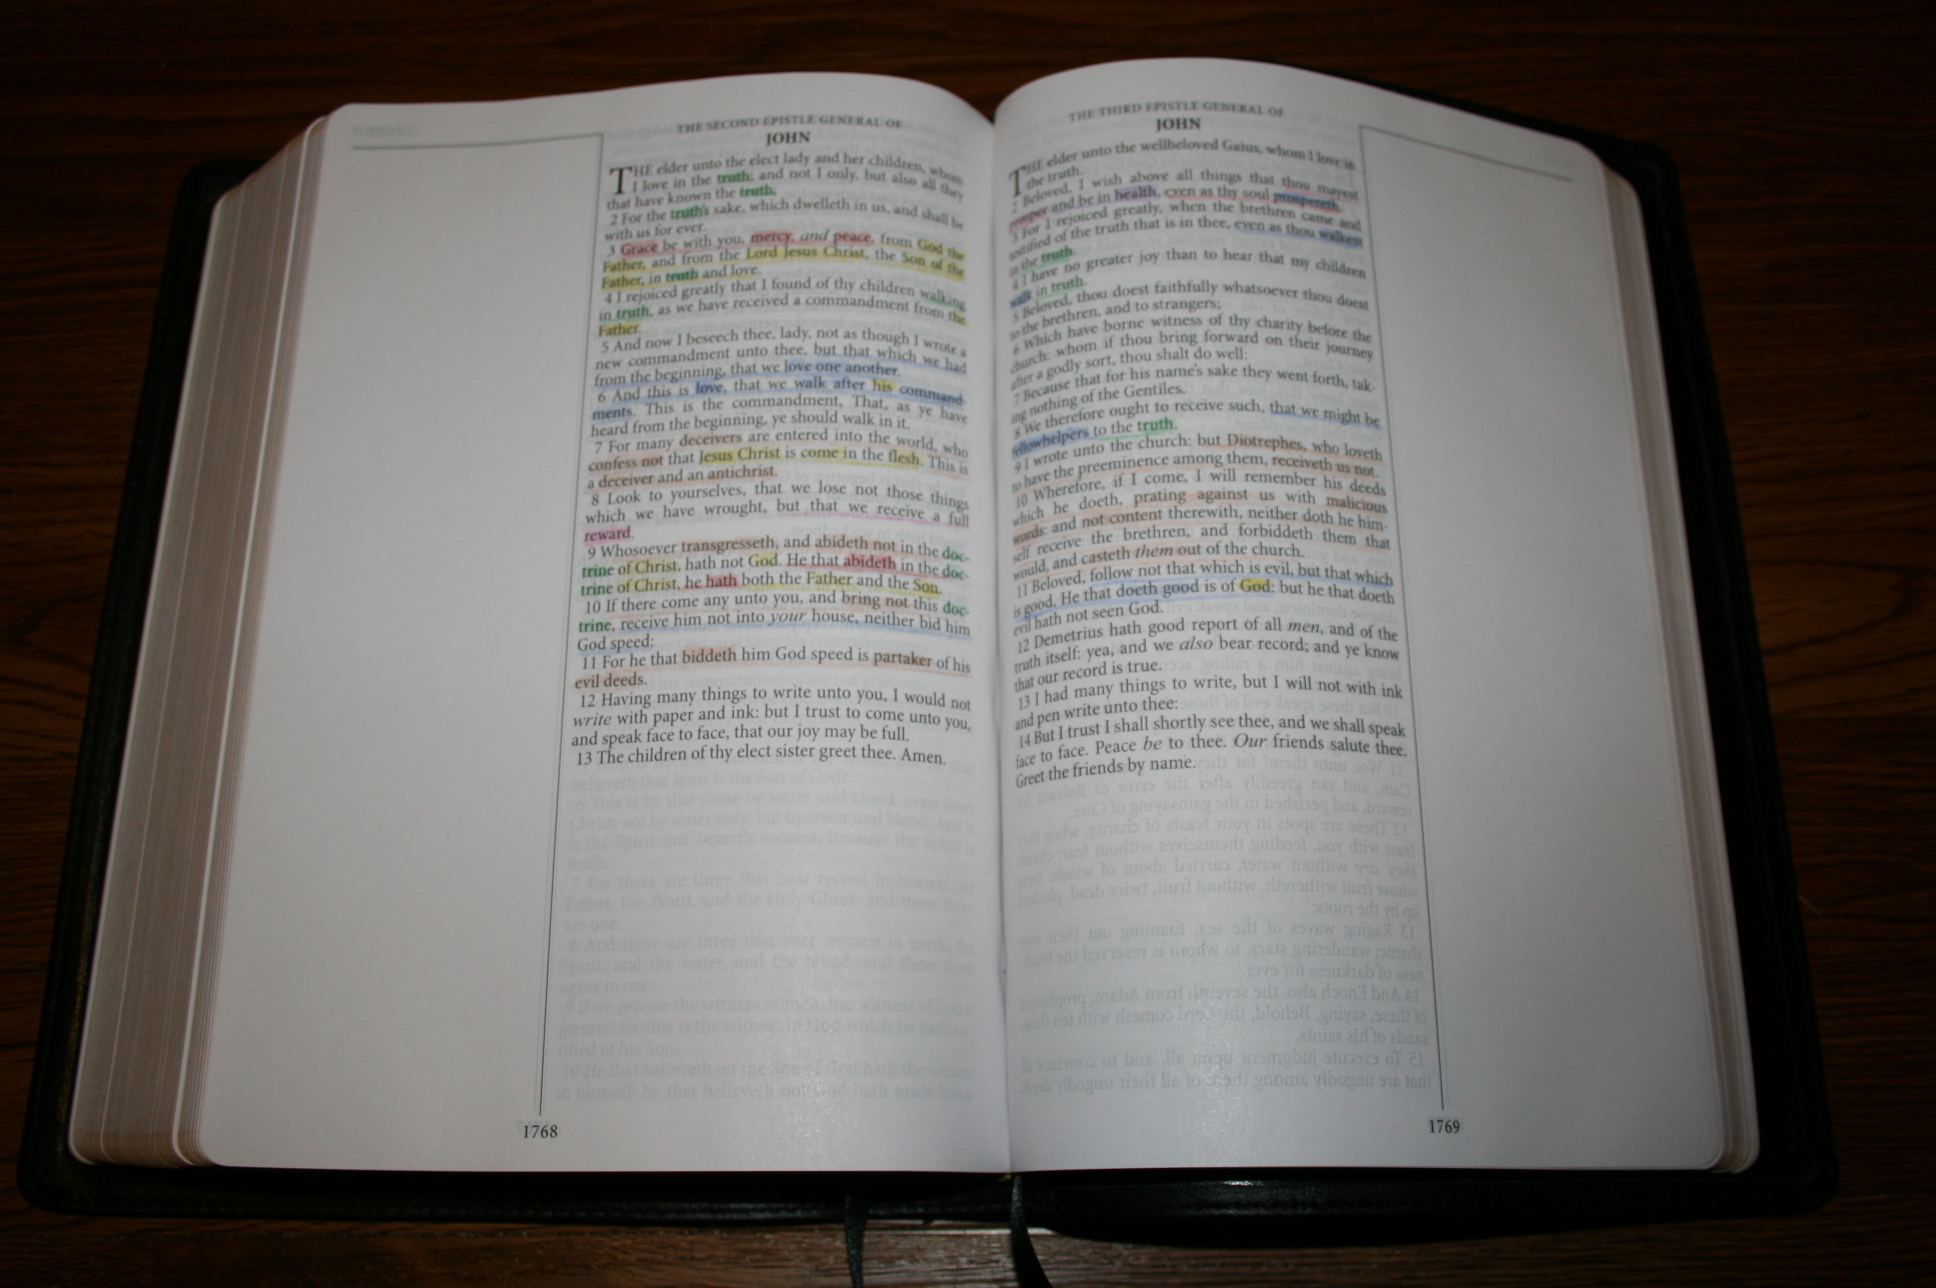 THE SECOND EPISTLE GENERAL OF
JOHN
THE elder unto the elect lady and her children, whom
I love in the truth; and not I only, but also all they
that have known the truth;
2 For the truth's sake, which dwelleth in us, and shall be
with us for ever.
3 Grace be with you, mercy, and peace, from God the
Father, and from the Lord Jesus Christ, the Son of the
Father, in truth and love.
4 I rejoiced greatly that I found of thy children walking
in truth, as we have received a commandment from the
Father.
5 And now I beseech thee, lady, not as though I wrote a
new commandment unto thee, but that which we had
from the beginning, that we love one another.
6 And this is love, that we walk after his command-
ments. This is the commandment, That, as ye have
heard from the beginning, ye should walk in it.
7 For many deceivers are entered into the world, who
confess not that Jesus Christ is come in the flesh. This is
a deceiver and an antichrist.
8 Look to yourselves, that we lose not those things
which we have wrought, but that we receive a full
reward.
9 Whosoever transgresseth, and abideth not in the doc-
trine of Christ, hath not God. He that abideth in the doc-
trine of Christ, he hath both the Father and the Son.
10 If there come any unto you, and bring not this doc-
trine, receive him not into your house, neither bid him
God speed:
11 For he that biddeth him God speed is partaker of his
evil deeds.
12 Having many things to write unto you, I would not
write with paper and ink: but I trust to come unto you,
and speak face to face, that our joy may be full.
13 The children of thy elect sister greet thee. Amen.
1768
THE THIRD EPISTLE GENERAL OF
JOHN
THE elder unto the wellbeloved Gaius, whom I love in
the truth.
2 Beloved, I wish above all things that thou mayest
prosper and be in health, even as thy soul prospereth.
3 For I rejoiced greatly, when the brethren came and
testified of the truth that is in thee, even as thou walkest
in the truth.
4 I have no greater joy than to hear that my children
walk in truth.
5 Beloved, thou doest faithfully whatsoever thou doest
to the brethren, and to strangers;
6 Which have borne witness of thy charity before the
church: whom if thou bring forward on their journey
after a godly sort, thou shalt do well:
7 Because that for his name's sake they went forth, tak-
ing nothing of the Gentiles.
8 We therefore ought to receive such, that we might be
fellowhelpers to the truth.
9 I wrote unto the church: but Diotrephes, who loveth
to have the preeminence among them, receiveth us not.
10 Wherefore, if I come, I will remember his deeds
which he doeth, prating against us with malicious
words: and not content therewith, neither doth he him-
self receive the brethren, and forbiddeth them that
would, and casteth them out of the church.
11 Beloved, follow not that which is evil, but that which
is good. He that doeth good is of God: but he that doeth
evil hath not seen God.
12 Demetrius hath good report of all men, and of the
truth itself: yea, and we also bear record; and ye know
that our record is true.
13 I had many things to write, but I will not with ink
and pen write unto thee:
14 But I trust I shall shortly see thee, and we shall speak
face to face. Peace be to thee. Our friends salute thee.
Greet the friends by name.
1769